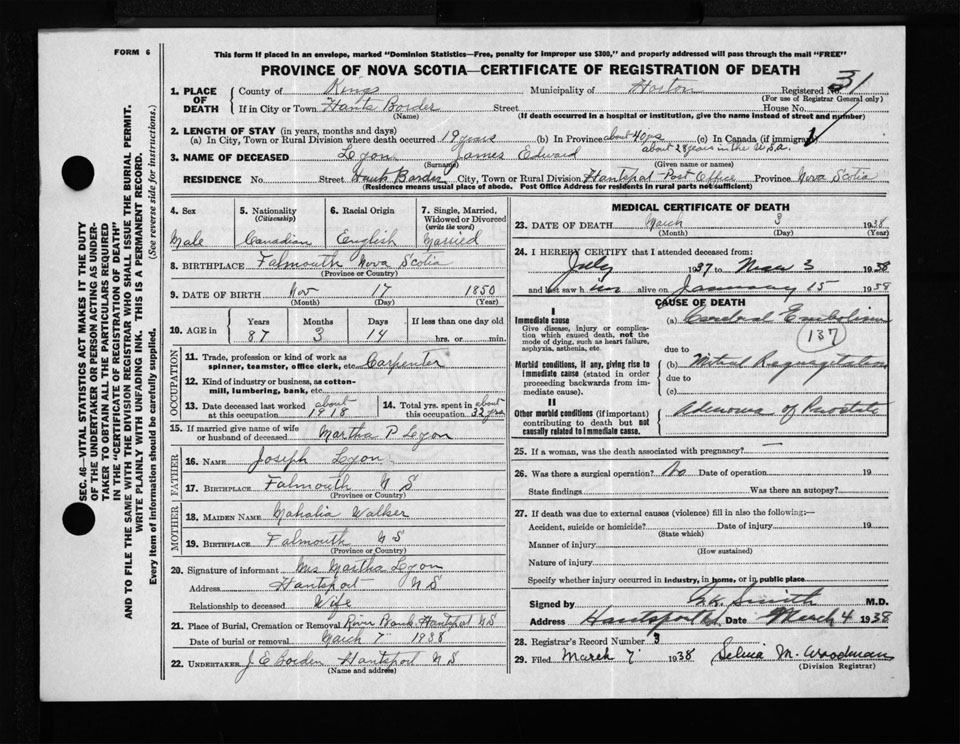 FORM 6
This form if placed in an envelope, marked "Dominion Statistics—Free, penalty for improper use $300," and properly addressed will pass through the mail "FREE"
PROVINCE OF NOVA SCOTIA—CERTIFICATE OF REGISTRATION OF DEATH
SEC. 46—VITAL STATISTICS ACT MAKES IT THE DUTY
OF THE UNDERTAKER OR PERSON ACTING AS UNDER-
TAKER TO OBTAIN ALL THE PARTICULARS REQUIRED
IN THE "CERTIFICATE OF REGISTRATION OF DEATH"
AND TO FILE THE SAME WITH THE DIVISION REGISTRAR WHO SHALL ISSUE THE BURIAL PERMIT.
WRITE PLAINLY WITH UNFADING INK. THIS IS A PERMANENT RECORD.
Every item of information should be carefully supplied. (See reverse side for instructions.)
1. PLACE OF DEATH
County of Kings Municipality of Horton Registered No. 31
(For use of Registrar General only)
If in City or Town Hants Border Street House No.
(Name) (If death occurred in a hospital or institution, give the name instead of street and number)
2. LENGTH OF STAY (in years, months and days)
(a) In City, Town or Rural Division where death occurred 19 years (b) In Province about 40 yrs (c) In Canada (if immigrant)
about 28 years in the U.S.a.
3. NAME OF DECEASED Lyon James Edward
(Surname) (Given name or names)
RESIDENCE No. Street Hants Border City, Town or Rural Division Hantsport Post Office Province Nova Scotia
(Residence means usual place of abode. Post Office Address for residents in rural parts not sufficient)
4. Sex
Male
5. Nationality
(Citizenship)
Canadian
6. Racial Origin
English
7. Single, Married,
Widowed or Divorced
(write the word)
Married
8. BIRTHPLACE Falmouth Nova Scotia
(Province or Country)
9. DATE OF BIRTH Nov 17 1850
(Month) (Day) (Year)
10. AGE in
Years Months Days If less than one day old
87 3 14 hrs. or min.
OCCUPATION
11. Trade, profession or kind of work as
spinner, teamster, office clerk, etc. Carpenter
12. Kind of industry or business, as cotton-
mill, lumbering, bank, etc.
13. Date deceased last worked
at this occupation about 1918
14. Total yrs. spent in
this occupation about 32 yrs
15. If married give name of wife
or husband of deceased Martha P Lyon
FATHER
16. NAME Joseph Lyon
17. BIRTHPLACE Falmouth N S
(Province or Country)
MOTHER
18. MAIDEN NAME Mahalia Walker
19. BIRTHPLACE Falmouth N S
(Province or Country)
20. Signature of informant Mrs Martha Lyon
Address Hantsport N S
Relationship to deceased Wife
21. Place of Burial, Cremation or Removal River Bank Hantsport NS
Date of burial or removal March 7 1938
22. UNDERTAKER J E Borden Hantsport N S
(Name and address)
MEDICAL CERTIFICATE OF DEATH
23. DATE OF DEATH March 3 1938
(Month) (Day) (Year)
24. I HEREBY CERTIFY that I attended deceased from:
July 1937 to Mar 3 1938
and last saw him alive on January 15 1938
CAUSE OF DEATH
I
Immediate cause
Give disease, injury or complica-
tion which caused death, not the
mode of dying, such as heart failure,
asphyxia, asthenia, etc.
(a) Cerebral Embolism
137
due to
Morbid conditions, if any, giving rise to
immediate cause (stated in order
proceeding backwards from im-
mediate cause).
(b) Mitral Regurgitation
due to
(c)
II
Other morbid conditions (if important)
contributing to death but not
causally related to immediate cause.
Adenoma of Prostate
25. If a woman, was the death associated with pregnancy? —
26. Was there a surgical operation? No Date of operation 19
State findings Was there an autopsy?
27. If death was due to external causes (violence) fill in also the following:—
Accident, suicide or homicide? Date of injury 19
(State which)
Manner of injury
(How sustained)
Nature of injury
Specify whether injury occurred in industry, in home, or in public place
Signed by Smith M.D.
Address Hantsport Date March 4 1938
28. Registrar's Record Number 3
29. Filed March 7 1938 Selina M. Woodman
(Division Registrar)